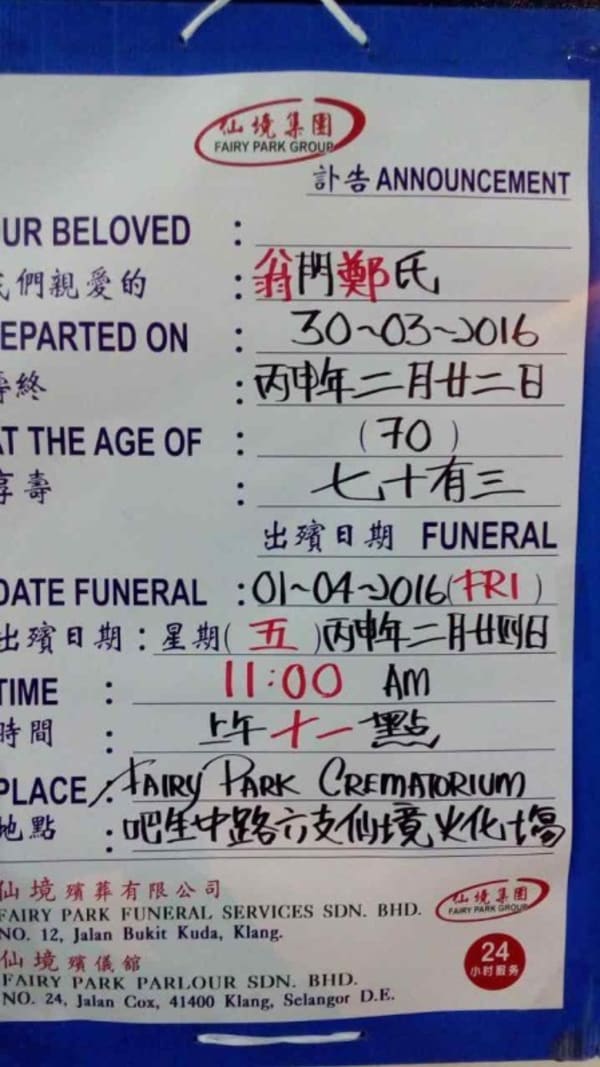 仙境集團
FAIRY PARK GROUP
訃告 ANNOUNCEMENT
UR BELOVED :
們親愛的 : 翁門鄭氏
EPARTED ON : 30~03~2016
終 : 丙申年二月廿二日
AT THE AGE OF : (70)
享壽 : 七十有三
出殯日期 FUNERAL
DATE FUNERAL : 01~04~2016 (FRI)
出殯日期 : 星期(五) 丙申年二月廿四日
TIME : 11:00 AM
時間 : 上午十一點
PLACE : FAIRY PARK CREMATORIUM
地點 : 吧生中路六支仙境火化場
仙境殯葬有限公司
FAIRY PARK FUNERAL SERVICES SDN. BHD.
NO. 12, Jalan Bukit Kuda, Klang.
仙境殯儀館
FAIRY PARK PARLOUR SDN. BHD.
NO. 24, Jalan Cox, 41400 Klang, Selangor D.E.
仙境集團
FAIRY PARK GROUP
24
小时服务